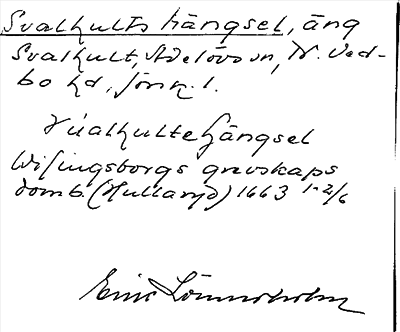 Svalhults hängsel, äng
Svalhult, Adelövs sn, N. Ved-
bo hd, Jönk. l.
Sualhulte hängsel
Wisingsborgs grevskaps
domb. (Hullaryd) 1663 1-2/6
Eric Lönnerholm